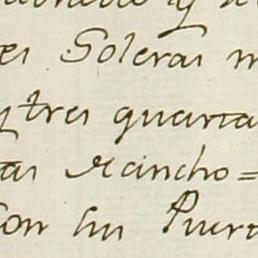 es Soleras m
y tres quarta
as Rancho=
con su Puert